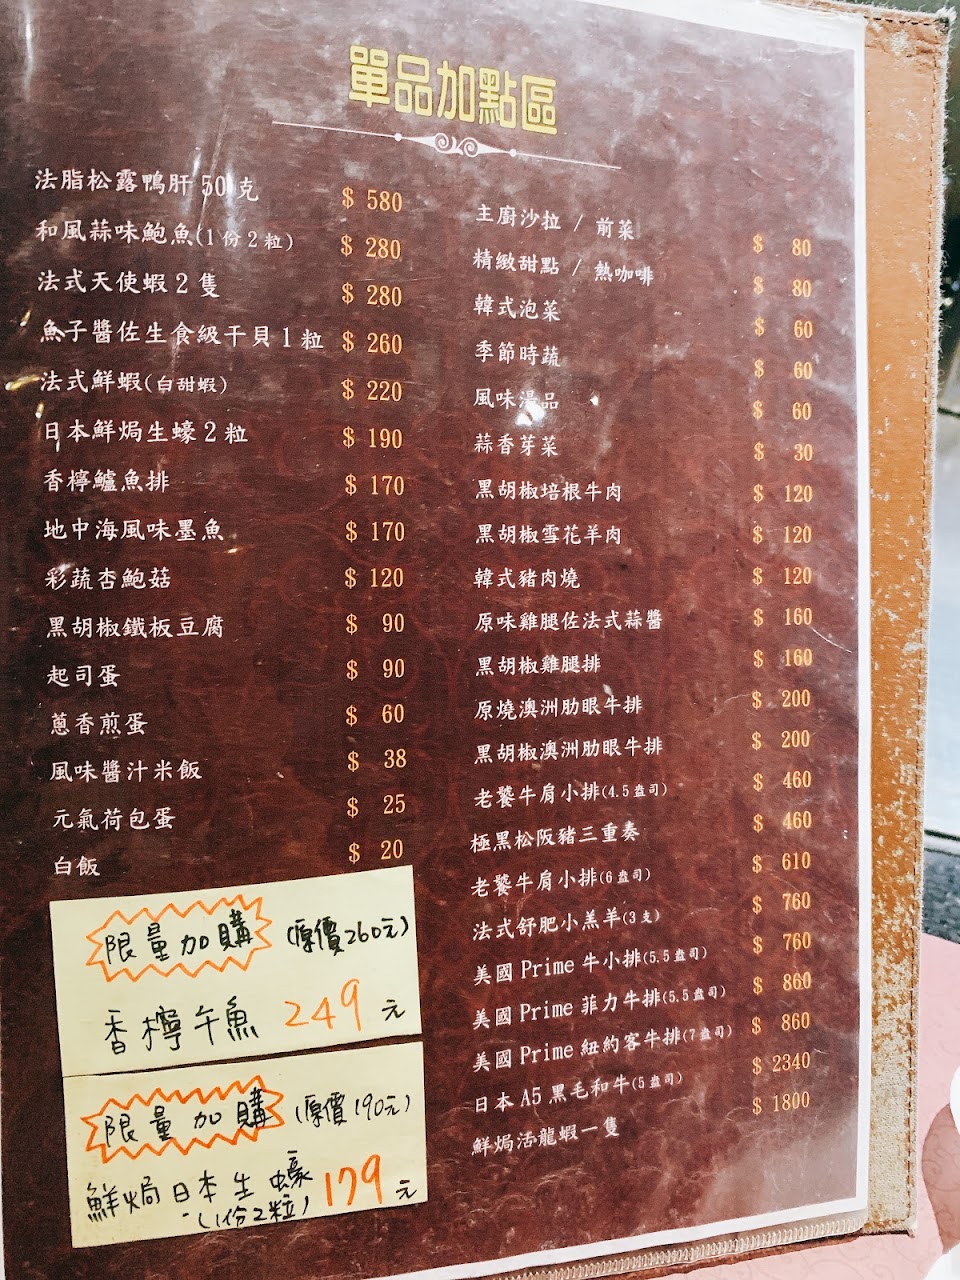 單品加點區
法脂松露鴨肝 50 克 $ 580
和風蒜味鮑魚(1 份 2 粒) $ 280
法式天使蝦 2 隻 $ 280
魚子醬佐生食級干貝 1 粒 $ 260
法式鮮蝦(白甜蝦) $ 220
日本鮮焗生蠔 2 粒 $ 190
香檸鱸魚排 $ 170
地中海風味墨魚 $ 170
彩蔬杏鮑菇 $ 120
黑胡椒鐵板豆腐 $ 90
起司蛋 $ 90
蔥香煎蛋 $ 60
風味醬汁米飯 $ 38
元氣荷包蛋 $ 25
白飯 $ 20
限量加購 (原價260元)
香檸午魚 249 元
限量加購 (原價190元)
鮮焗日本生蠔 179 元
(1份2粒)
主廚沙拉 / 前菜 $ 80
精緻甜點 / 熱咖啡 $ 80
韓式泡菜 $ 60
季節時蔬 $ 60
風味湯品 $ 60
蒜香芽菜 $ 30
黑胡椒培根牛肉 $ 120
黑胡椒雪花羊肉 $ 120
韓式豬肉燒 $ 120
原味雞腿佐法式蒜醬 $ 160
黑胡椒雞腿排 $ 160
原燒澳洲肋眼牛排 $ 200
黑胡椒澳洲肋眼牛排 $ 200
老饕牛肩小排(4.5 盎司) $ 460
極黑松阪豬三重奏 $ 460
老饕牛肩小排(6 盎司) $ 610
法式舒肥小羔羊(3 支) $ 760
美國 Prime 牛小排(5.5 盎司) $ 760
美國 Prime 菲力牛排(5.5 盎司) $ 860
美國 Prime 紐約客牛排(7 盎司) $ 860
日本 A5 黑毛和牛(5 盎司) $ 2340
鮮焗活龍蝦一隻 $ 1800